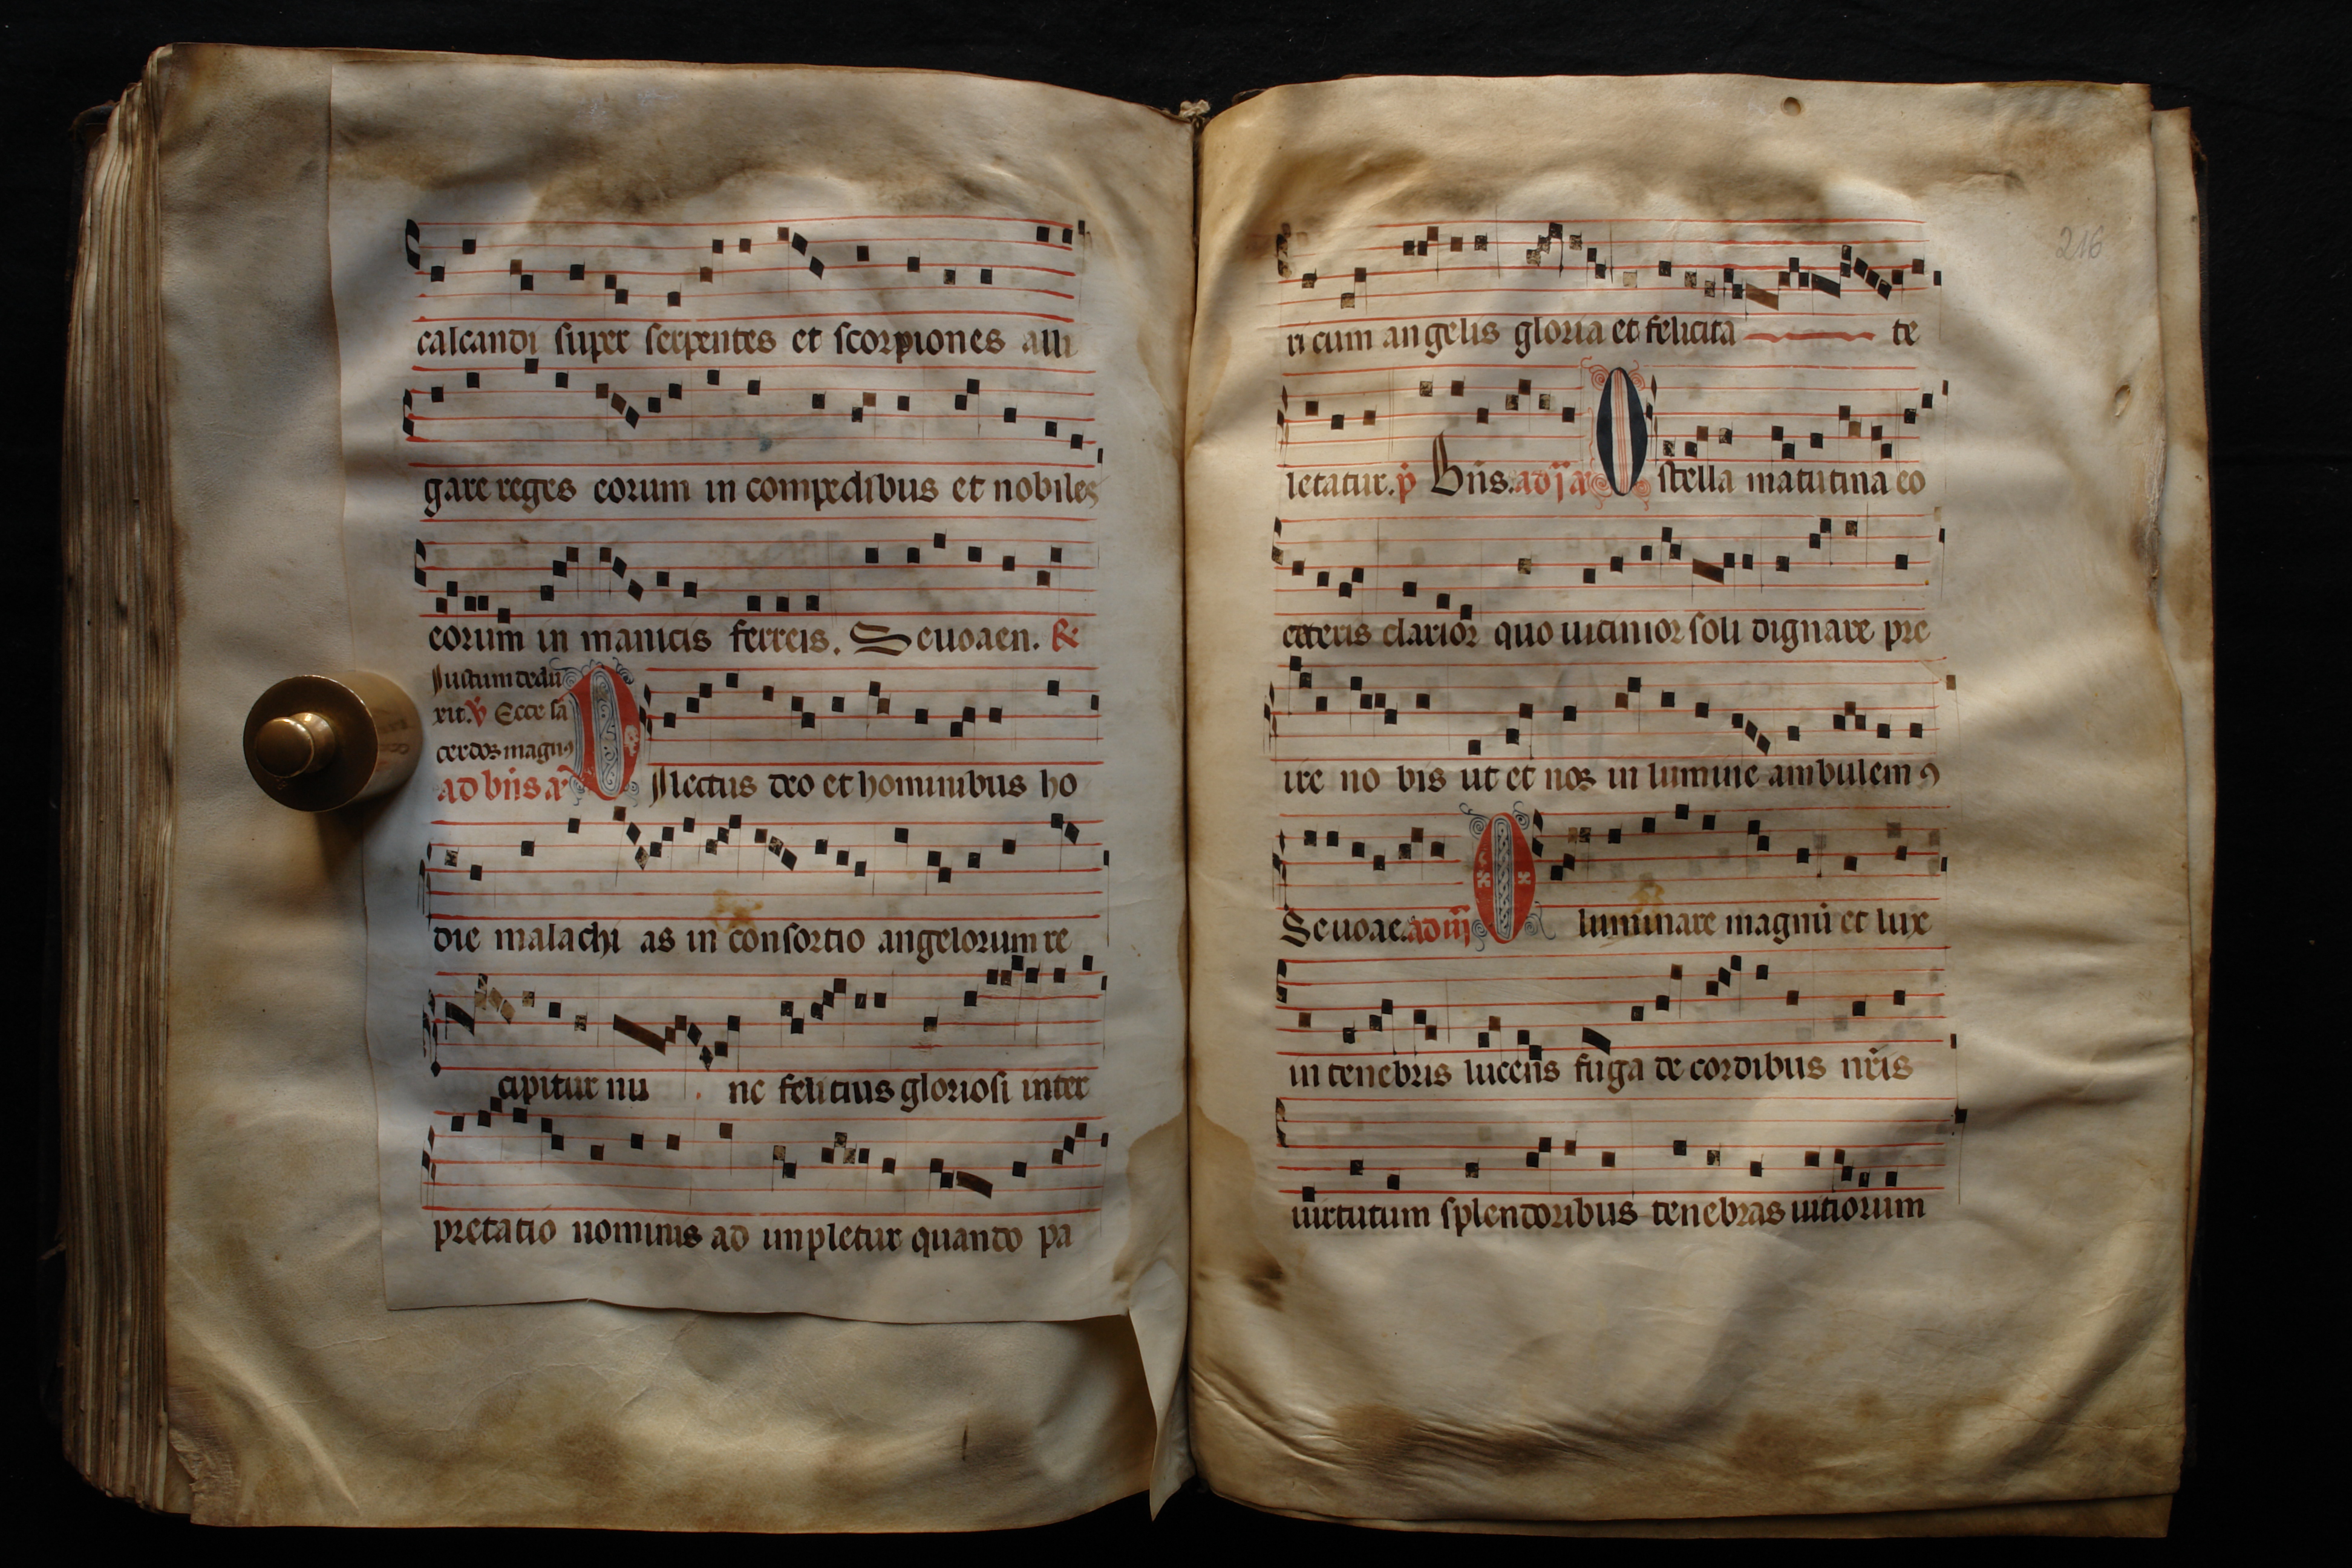 calcandi super serpentes et scorpiones alli
gare reges eorum in compedibus et nobiles
eorum in manicis ferreis. Seuouaen. R
Justum dedu
xit. V Ecce sa
cerdos magnꝰ
ad bn̄s añ
DIlectus deo et hominibus ho
die malachi as in consortio angelorum re
cipitur nu nc felicius gloriosi inter
pretatio nominis ad impletur quando pa
216
ri cum angelis gloria et felicita te
letatur. p̄ Bn̄s. ad j añ O stella matutina eo
ceteris clarior quo uicinior soli dignare pre
ire no bis ut et nos in lumine ambulemꝰ
Seuouae. ad iij O luminare magnū et lux
in tenebris lucens fuga de cordibus nr̄is
uirtutum splendoribus tenebras uitiorum